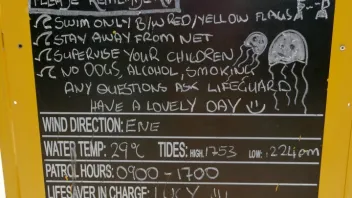 PLEASE REMEMBER
SWIM ONLY B/W RED/YELLOW FLAGS
STAY AWAY FROM NET
SUPERVISE YOUR CHILDREN
NO DOGS, ALCOHOL, SMOKING
ANY QUESTIONS ASK LIFEGUARD
HAVE A LOVELY DAY
WIND DIRECTION: ENE
WATER TEMP: 29°C TIDES: HIGH: 1753 LOW: 1224pm
PATROL HOURS: 0900-1700
LIFESAVER IN CHARGE: LUCY